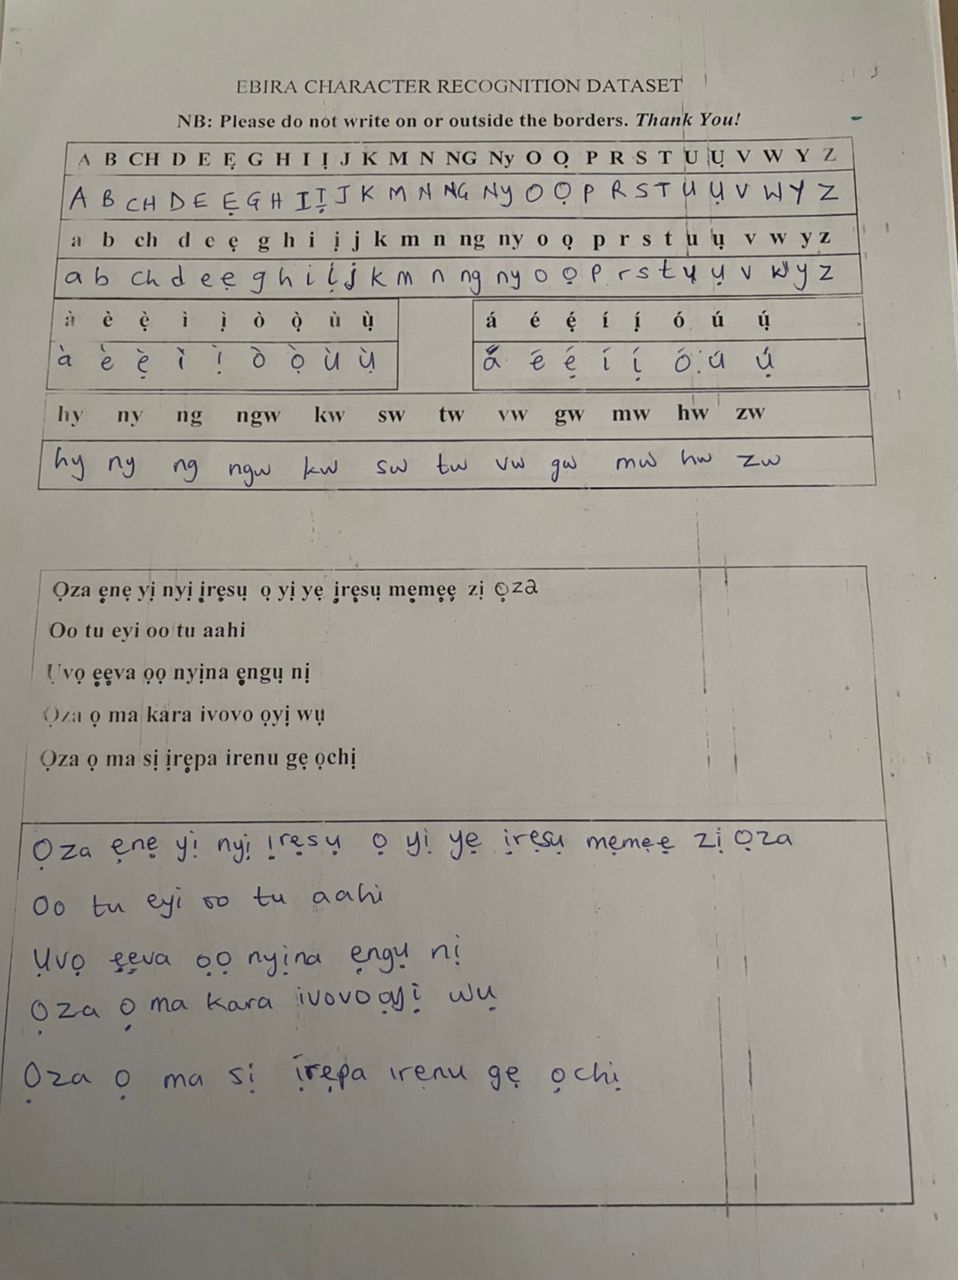 EBIRA CHARACTER RECOGNITION DATASET
NB: Please do not write on or outside the borders. Thank You!
A B CH D E Ẹ G H I Ị J K M N NG Ny O Ọ P R S T U Ụ V W Y Z
A B CH D E Ẹ G H I Ị J K M N NG Ny O Ọ P R S T U Ụ V W Y Z
a b ch d e ẹ g h i ị j k m n ng ny o ọ p r s t u ụ v w y z
a b ch d e ẹ g h i ị j k m n ng ny o ọ p r s t ụ ụ v w y z
à è ẹ̀ ì ị̀ ò ọ̀ ù ụ̀ á é ẹ́ í ị́ ó ú ụ́
à è ẹ̀ ì ị̀ ò ọ̀ ù ụ̀ á é ẹ́ í ị́ ó ú ụ́
hy ny ng ngw kw sw tw vw gw mw hw zw
hy ny ng ngw kw sw tw vw gw mw hw zw
Ọza ẹnẹ yị nyị ịrẹsụ ọ yị yẹ ịrẹsụ mẹmẹẹ zị ọza
Oo tu eyi oo tu aahi
Ụvọ ẹẹva ọọ nyịna ẹngụ nị
Ọza ọ ma kara ivovo ọyị wụ
Ọza ọ ma sị ịrẹpa irenu gẹ ọchị
Ọza ẹnẹ yị nyị ịrẹsụ ọ yị yẹ ịrẹsụ mẹmẹẹ zị ọza
Oo tu eyi oo tu aahi
Ụvọ ẹẹva ọọ nyịna ẹngụ nị
Ọza ọ ma kara ivovo ọyị wụ
Ọza ọ ma sị ịrẹpa irenu gẹ ọchị